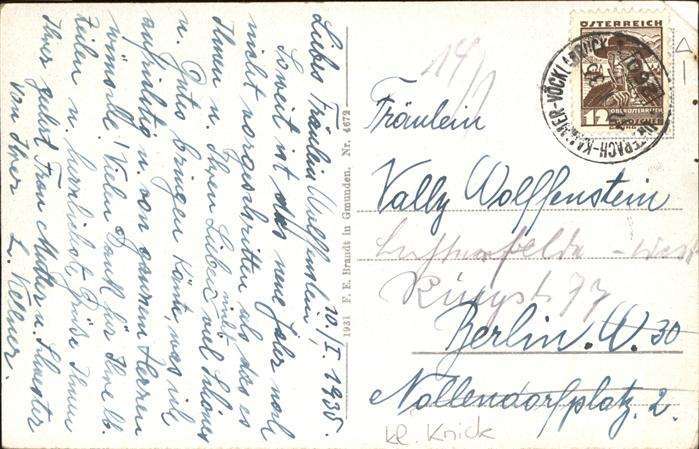 10./I. 1935.
Liebes Fräulein Wolffenstein!
Soweit ist das neue Jahr noch
nicht vorgeschritten als das es
Ihnen u. Ihren Lieben nicht viel Schönes
u. Gutes bringen könnte, was ich
aufrichtig u. von ganzem Herzen
wünsche! Vielen Dank für Ihre lb.
Zeilen u. herzlichst Grüße Ihnen
Ihrer geehrt. Frau Mutter u. Schwester
von Ihrer L. Keller.
1931 F. E. Brandt in Gmunden, Nr. 4672
ÖSTERREICH
12
OBERÖSTERREICH
KAMMER-VÖCKLABRUCK
14/1
Fräulein
Vally Wolffenstein
West
77
Berlin. W. 30
Nollendorfplatz. 2.
kl. Knick